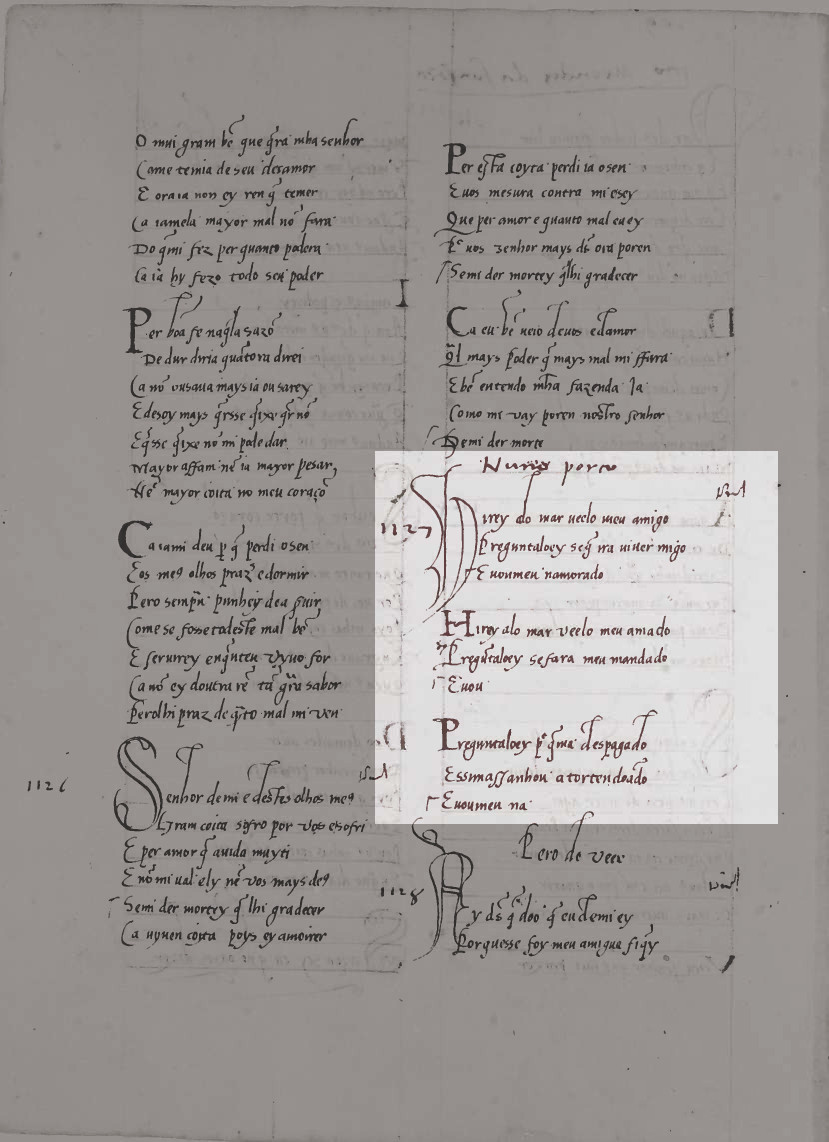 O mui gram bẽ que q̃ra mha senhor
Come temia de seu desamor
E oraia non ey ren q̃ temer
Ca iamela mayor mal nõ fara
Do q̃mi fez per quanto podera
Ca ia hy fezo todo seu poder
Per boa fe naq̃la sazõ
De dur diria quãtora direi
Ca nõ ousaua mays ia ousarey
E desoy mays q̃rsse q̃ixe q̃r nõ
E q̃sse q̃ixe nõ mi pode dar
Mayor affam nẽ ia mayor pesar
Nẽ mayor coita no meu coraçõ
Ca iami deu p q̃ perdi o sen
Eos me9 olhos praz̃ e dormir
Pero semp̃n punhey dea s̃uir
Come se fosse todeste mal bẽ
E seruirey enq̃nteu vyuo for
Ca nõ ey doutra rẽ tã grã sabor
Perolhi praz de q̃to mal mi ven
1126
Senhor demi e destes olhos me9
Gram coita sofro por vos e sofri
E per amor q̃ auida muyti
E nõ mi ual ely nẽ vos mays de9
Semi der mortey q̃ lhi gradecer
Ca uyuen coita poys ey amoirer
Per esta coyta perdi ia o sen
Euos mesura contra mi e sey
Que per amor e quanto mal eu ey
Pẽ uos senhor mays ds̃ oia poren
Semi der mortey q̃lhi gradecer
Ca eu bẽ ueio deuos e damor
Q̃l mays poder q̃ mays mal mi ffara
E bẽ entendo mha fazenda ia
Como mi vay poren nostro senhor
Semi der morte
Nuno porco
1127
Hirey alo mar ueelo meu amigo
Preguntaloey seq̃ rra uiuer migo
E uoumeu namorado
Hirey alo mar ueelo meu amado
Pregũtaloey se fara meu mandado
E uou
Preguntaloey pẽ q̃ma despagado
Essi massanhou a torten doado
E uoumeu na
Pero de veer
1128
Ay ds̃ q̃ doo q̃ eu demi ey
Porquesse foy meu amigua fiq̃y